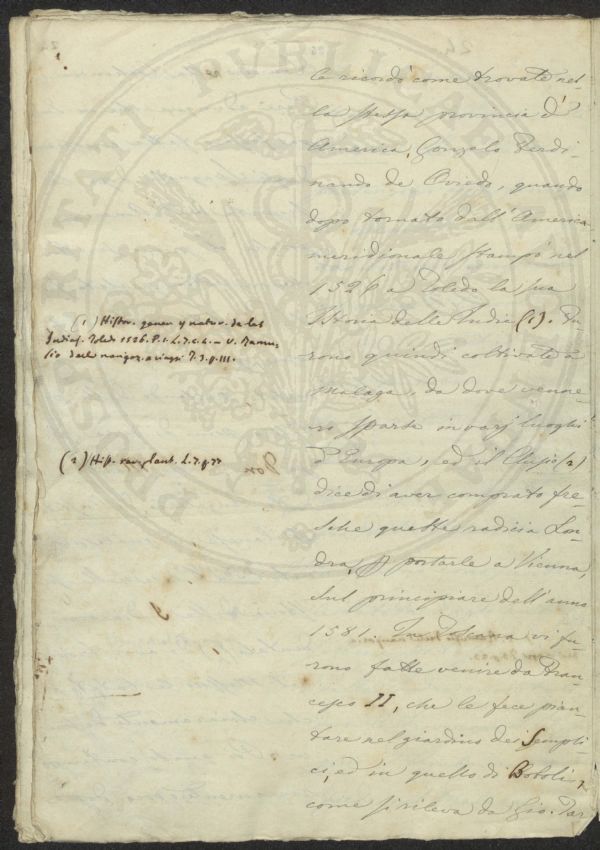 le ricordò come trovate nel-
la stessa provincia d'
America, Gonzalo Ferdi-
nando de Oviedo, quando
dopo tornato dall'America
meridionale stampò nel
1526 a Toledo la sua
Istoria delle Indie (1). Fu-
rono quindi coltivate a
Malaga, da dove venne-
ro sparte in varj luoghi
d'Europa, ed il Clusio (2)
dice di aver comprato fre-
sche queste radici a Lon-
dra, p portarle a Vienna,
sul principiare dell'anno
1581. In Toscana vi fu-
rono fatte venire da Fran-
cesco II, che le fece pian-
tare nel giardino dei Sempli-
ci, ed in quello di Boboli,
come si rileva da Gio. Tar
(1) Histor. gener. y natur. de las
Indias. Toledo 1526. P. 1. L. 7. c. 4. = V. Ramu-
sio delle navigaz. e viaggi T. 3. p. 111.
(2) Hist. rar. plant. L. 7. p. 77